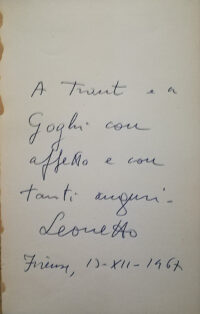 A Trent e a
Goghi con
affetto e con
tanti auguri -
Leonetto
Firenze, 17-XII-1967